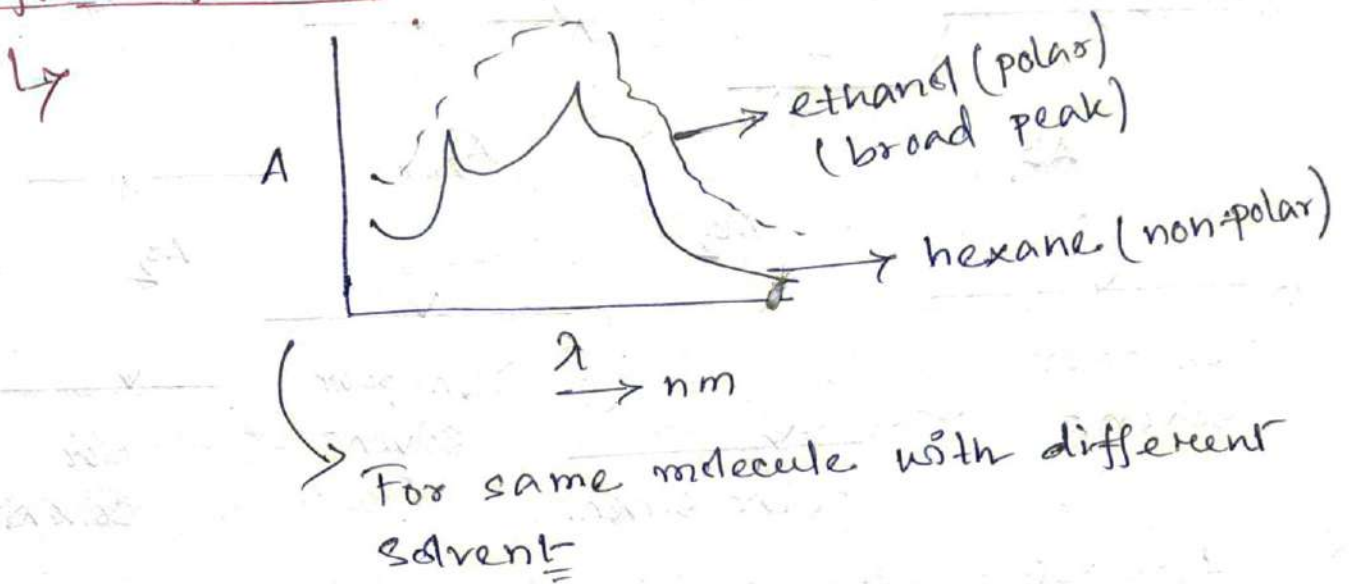 ethanol (polar)
(broad peak)
A
hexane (non-polar)
λ
→ nm
For same molecule with different
solvent